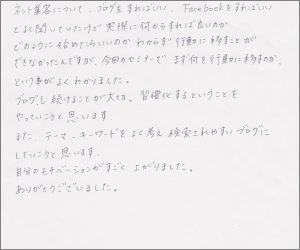 ネット集客について、ブログをすればいい、Facebookをすればいい
とよく聞いていたけど実際に何からすれば良いのか
どのように始めたらいいのかわからず行動に移すことが
できなかったんですが、今回のセミナーでまず何を行動に移すのか、
という事がよくわかりました。
ブログも続けることが大切。習慣化するということを
やっていこうと思います。
また、テーマ、キーワードをよく考え検索されやすいブログに
していこうと思います。
自分のモチベーションがすごく上がりました。
ありがとうございました。